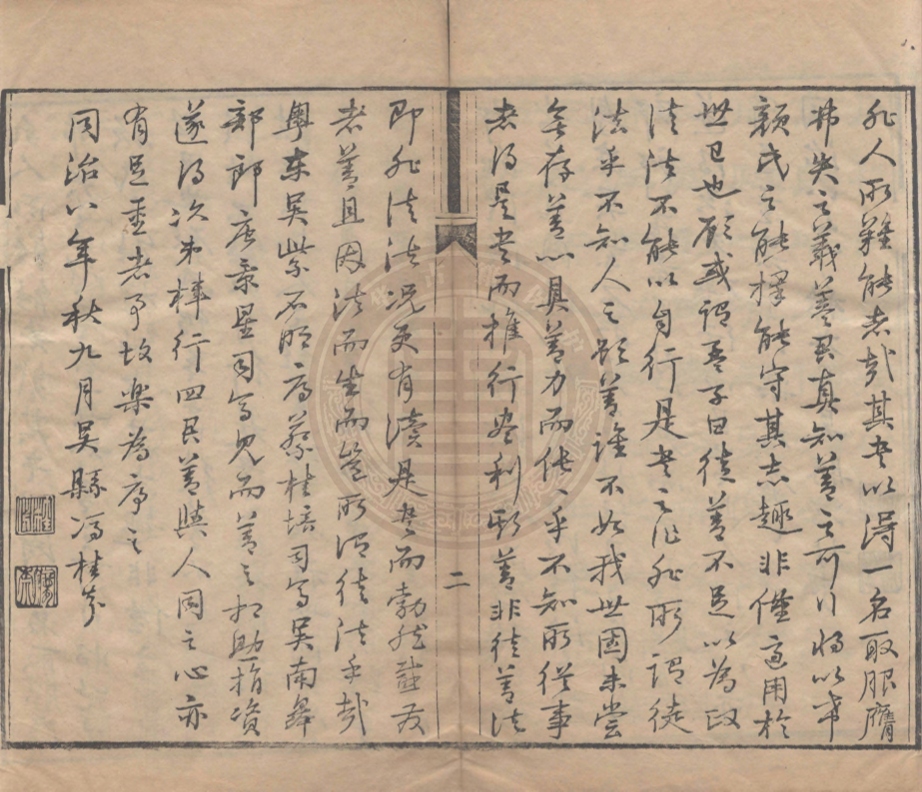 非人所難能者哉其書以得一名取服膺
弗失之義蓋君真知善之可行將以希
顏氏之能擇能守其志趣非僅適用於
世已也顧或謂孟子曰徒善不足以為政
徒法不能以自行是書之作非所謂徒
法乎不知人之好善誰不如我世固未嘗
無存善心具善力而倀〻乎不知所從事
者得是書而推行盡利斯善非徒善法
即非徒法況更有讀是書而勃然
者善且因法而生而豈所謂徒法乎哉
粵東吳紫石明府蔡桂培司馬吳南皋
部郎唐景星司馬見而善之相助捐資
遂得次第梓行四君善與人同之心亦
有足重者予故樂為序之
同治八年秋九月吳縣馮桂芬
二